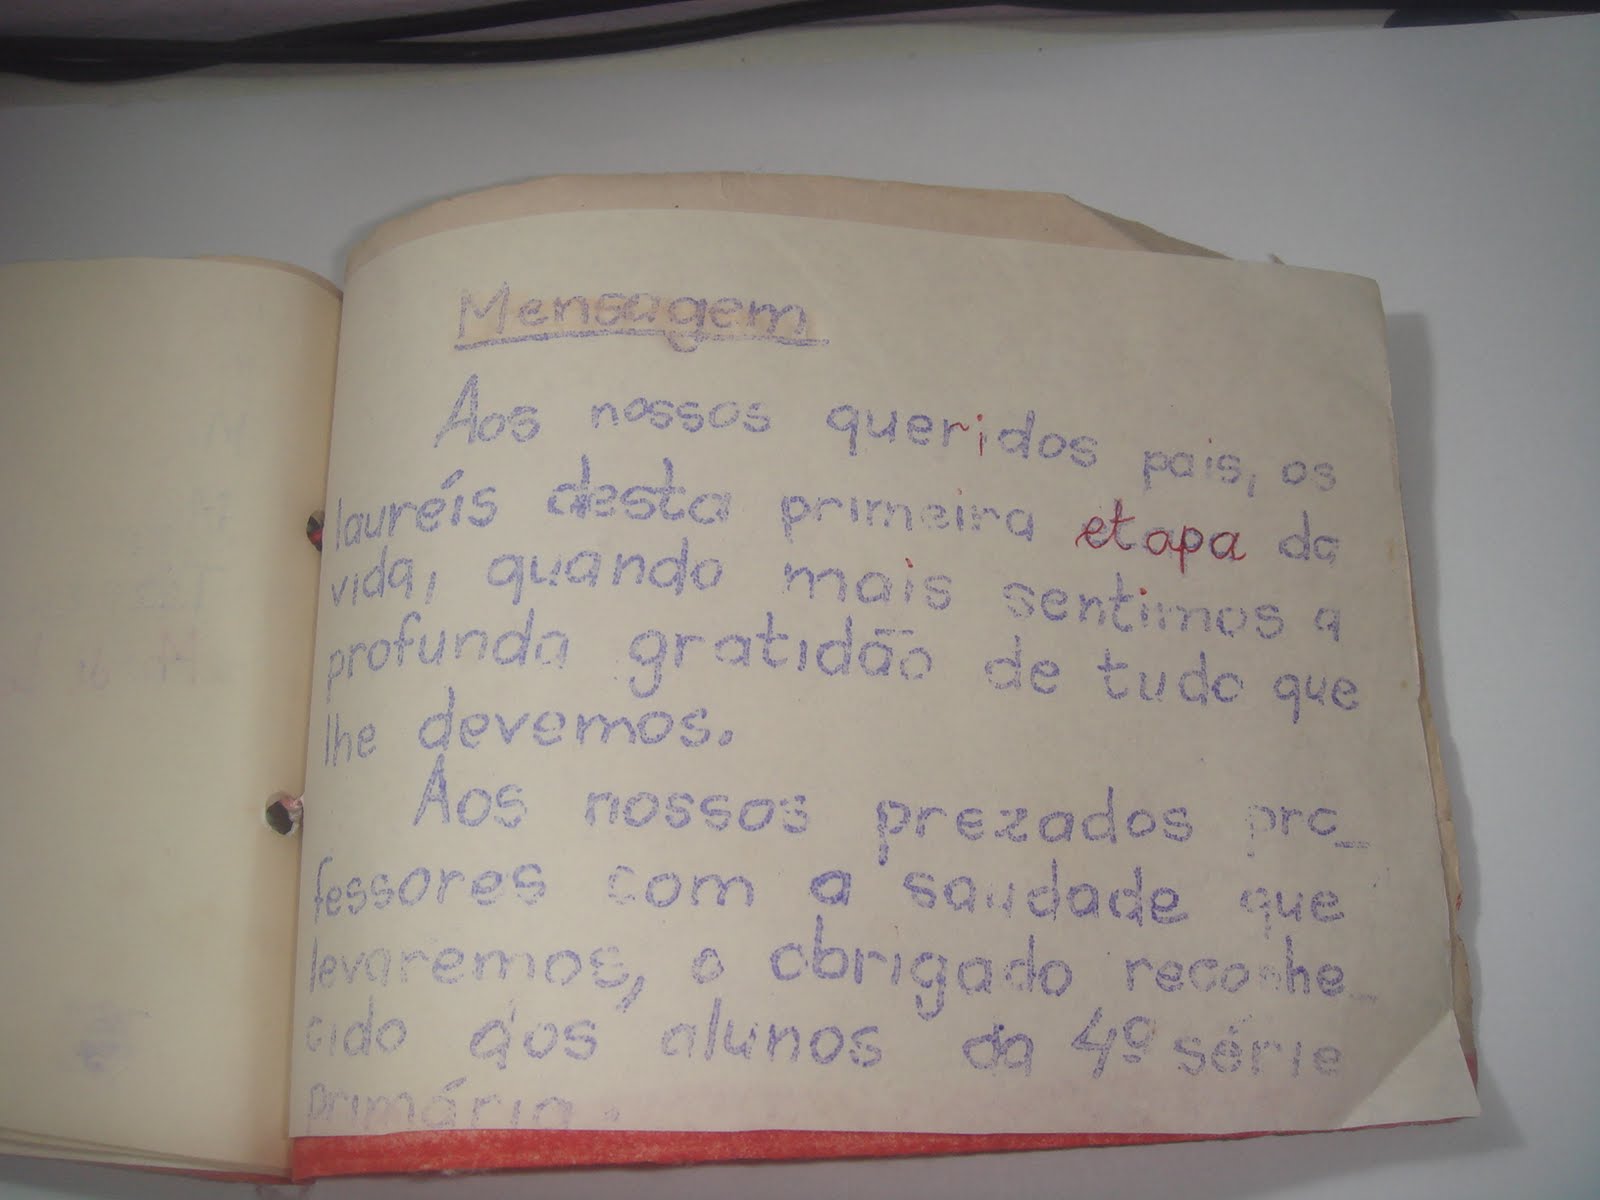 Mensagem
Aos nossos queridos pais, os
lauréis desta primeira etapa da
vida, quando mais sentimos a
profunda gratidão de tudo que
lhe devemos.
Aos nossos prezados pro_
fessores com a saudade que
levaremos, o obrigado reconhe_
cido dos alunos da 4º série
primária.